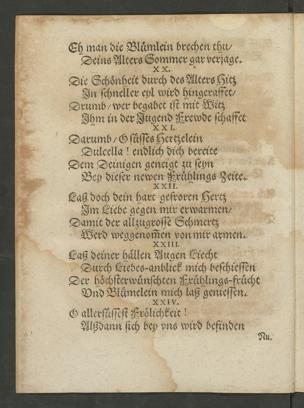 Eh man die Blümlein brechen thu/
Deins Alters Sommer gar verjage.
XX.
Die Schönheit durch des Alters Hitz
In schneller eyl wird hingeraffet/
Drumb/ wer begabet ist mit Witz
Ihm in der Jugend Frewde schaffet
XXI.
Darumb/ O süsses Hertzelein
Dulcella! endlich dich bereite
Dem Deinigen geneigt zu seyn
Bey dieser newen Frühlings Zeite.
XXII.
Laß doch dein hart gefroren Hertz
Im Liebe gegen mir erwarmen/
Damit der allzugrosse Schmertz
Werd weggenom̃en von mir armen.
XXIII.
Laß deiner hällen Augen Liecht
Durch Liebes-anblick mich beschiessen
Der höchsterwünschten Frühlings-frücht
Vnd Blümelein mich laß geniessen.
XXIV.
O allersüssest Frölichkeit!
Alßdann sich bey vns wird befinden
Nu.